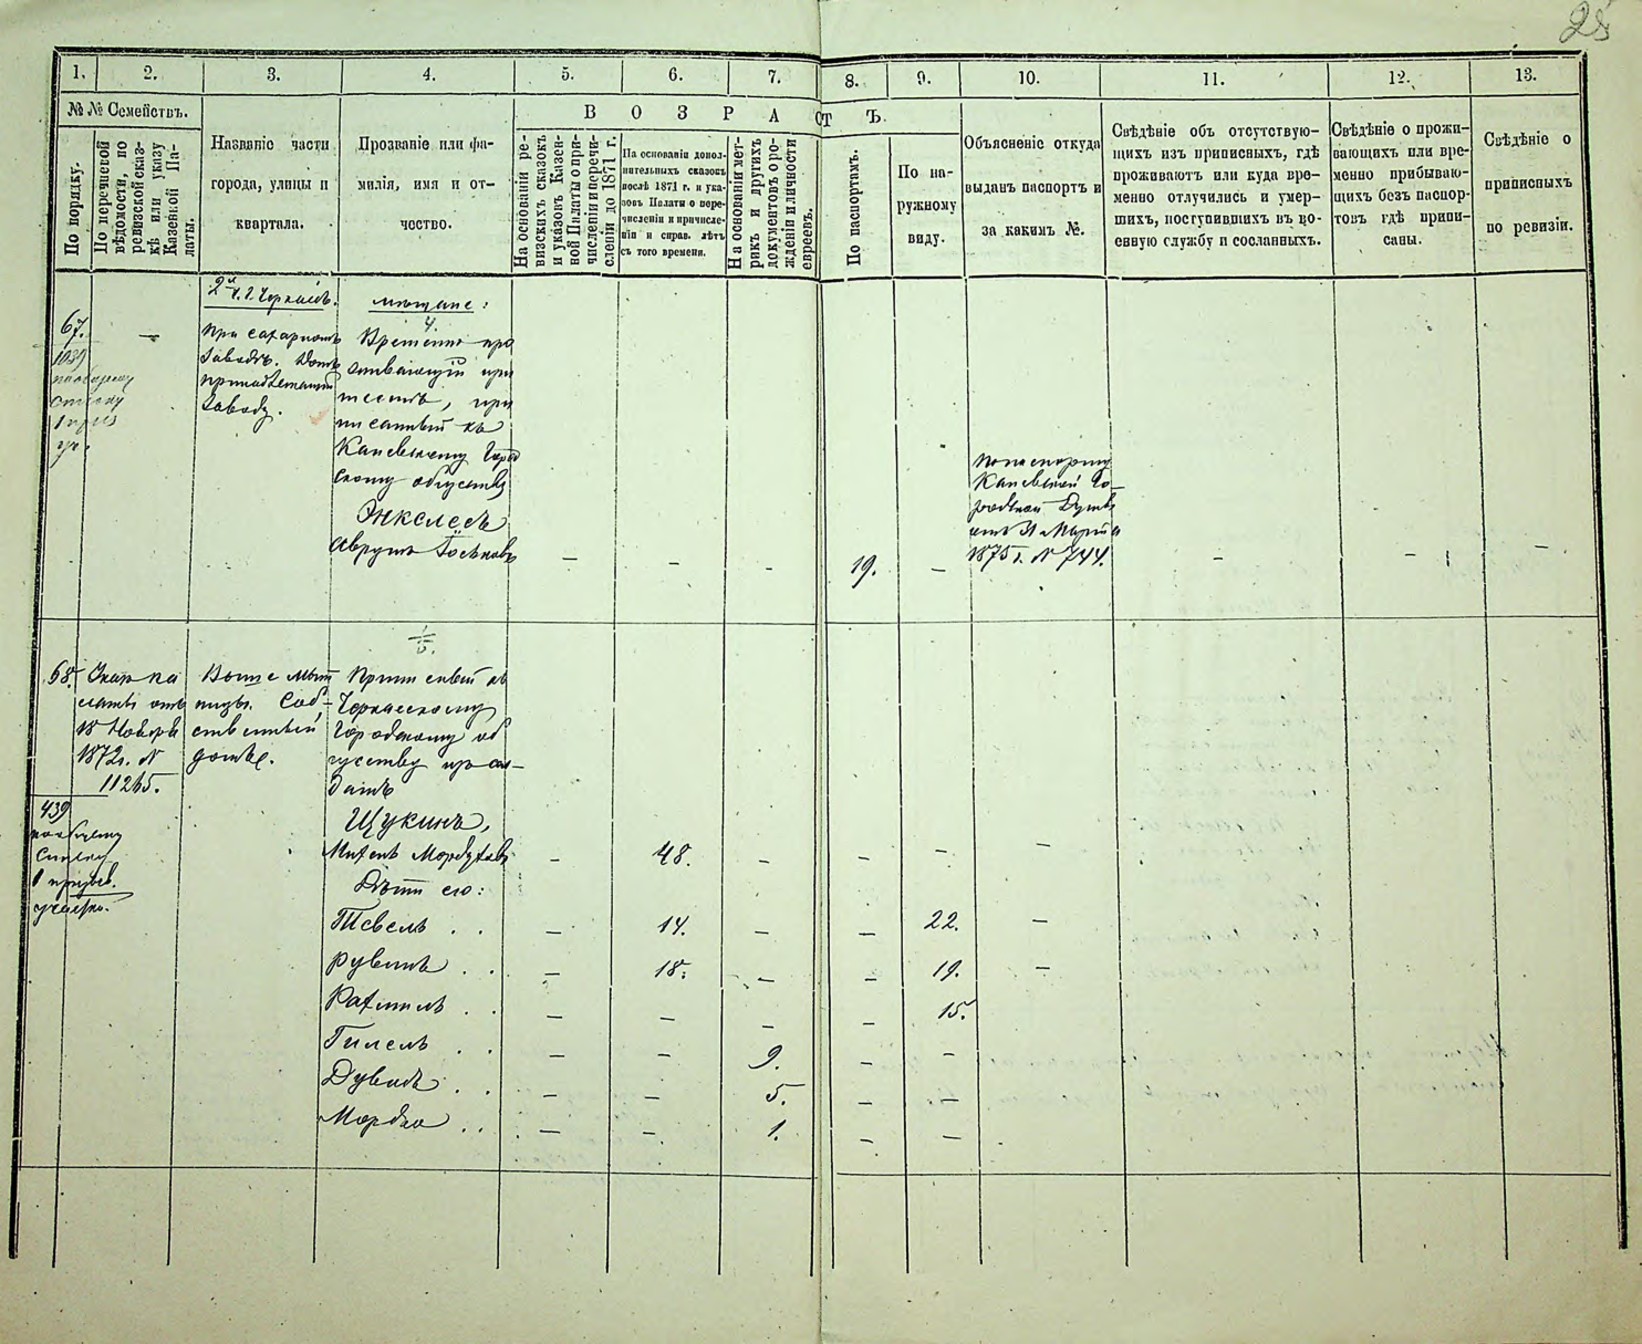 25
1.
2.
3.
4.
5.
6.
7.
8.
9.
10.
11.
12.
13.
№ № Семействъ.
По порядку.
По перечневой
вѣдомости, по
ревизской сказ-
кѣ или указу
Казенной Па-
латы.
Названіе части
города, улицы и
квартала.
Прозваніе или фа-
милія, имя и от-
чество.
ВОЗРАСТЪ.
На основаніи ре-
визскихъ сказокъ
и указовъ Казен-
ной Палаты о при-
численіи и перечи-
сленіи до 1871 г.
На основаніи допол-
нительныхъ сказокъ
послѣ 1871 г. и ука-
зовъ Палаты о пере-
численіи и причисле-
ніи и справ. лѣтъ
съ того времени.
На основаніи мет-
рикъ и другихъ
документовъ о ро-
жденіи и личности
евреевъ.
По паспортамъ.
По на-
ружному
виду.
Объясненіе откуда
выданъ паспортъ и
за какимъ №.
Свѣдѣніе объ отсутствую-
щихъ изъ приписныхъ, гдѣ
проживаютъ или куда вре-
менно отлучились и умер-
шихъ, поступившихъ въ во-
енную службу и сосланныхъ.
Свѣдѣніе о прожи-
вающихъ или вре-
менно прибываю-
щихъ безъ паспор-
товъ гдѣ припи-
саны.
Свѣдѣніе о
приписныхъ
по ревизіи.
67.
1039
—
При сахарномъ
заводѣ. Домъ
принадлежащій
заводу.
мѣщане:
4.
Временно про
живающій при
писанный къ
Каневскому Город
скому обществу
Энкелесъ
Аврумъ Іоськовъ
—
—
—
19.
—
По паспорту
Каневской Го-
родской Думы
отъ 31 Марта
1875 г. № 744.
—
—
—
68.
Указъ Па
латы отъ
18 Ноября
1872 г. №
11265.
439
по общему
списку
1 призыв.
участка.
Выше мѣт
ницы. Соб-
ственный
домъ.
1/5.
Приписный къ
Черкасскому
Городскому об
ществу из сол-
датъ
Щукинъ,
Михель Мордуховъ
—
48.
—
—
—
—
Дѣти его:
Тевель . .
—
14.
—
—
22.
—
Рувинъ . .
—
18.
—
—
19.
—
Рахмиль . .
—
—
—
—
15.
Гилель . .
—
—
9.
—
—
Дувидъ . .
—
—
5.
—
—
Мордко . .
—
—
1.
—
—